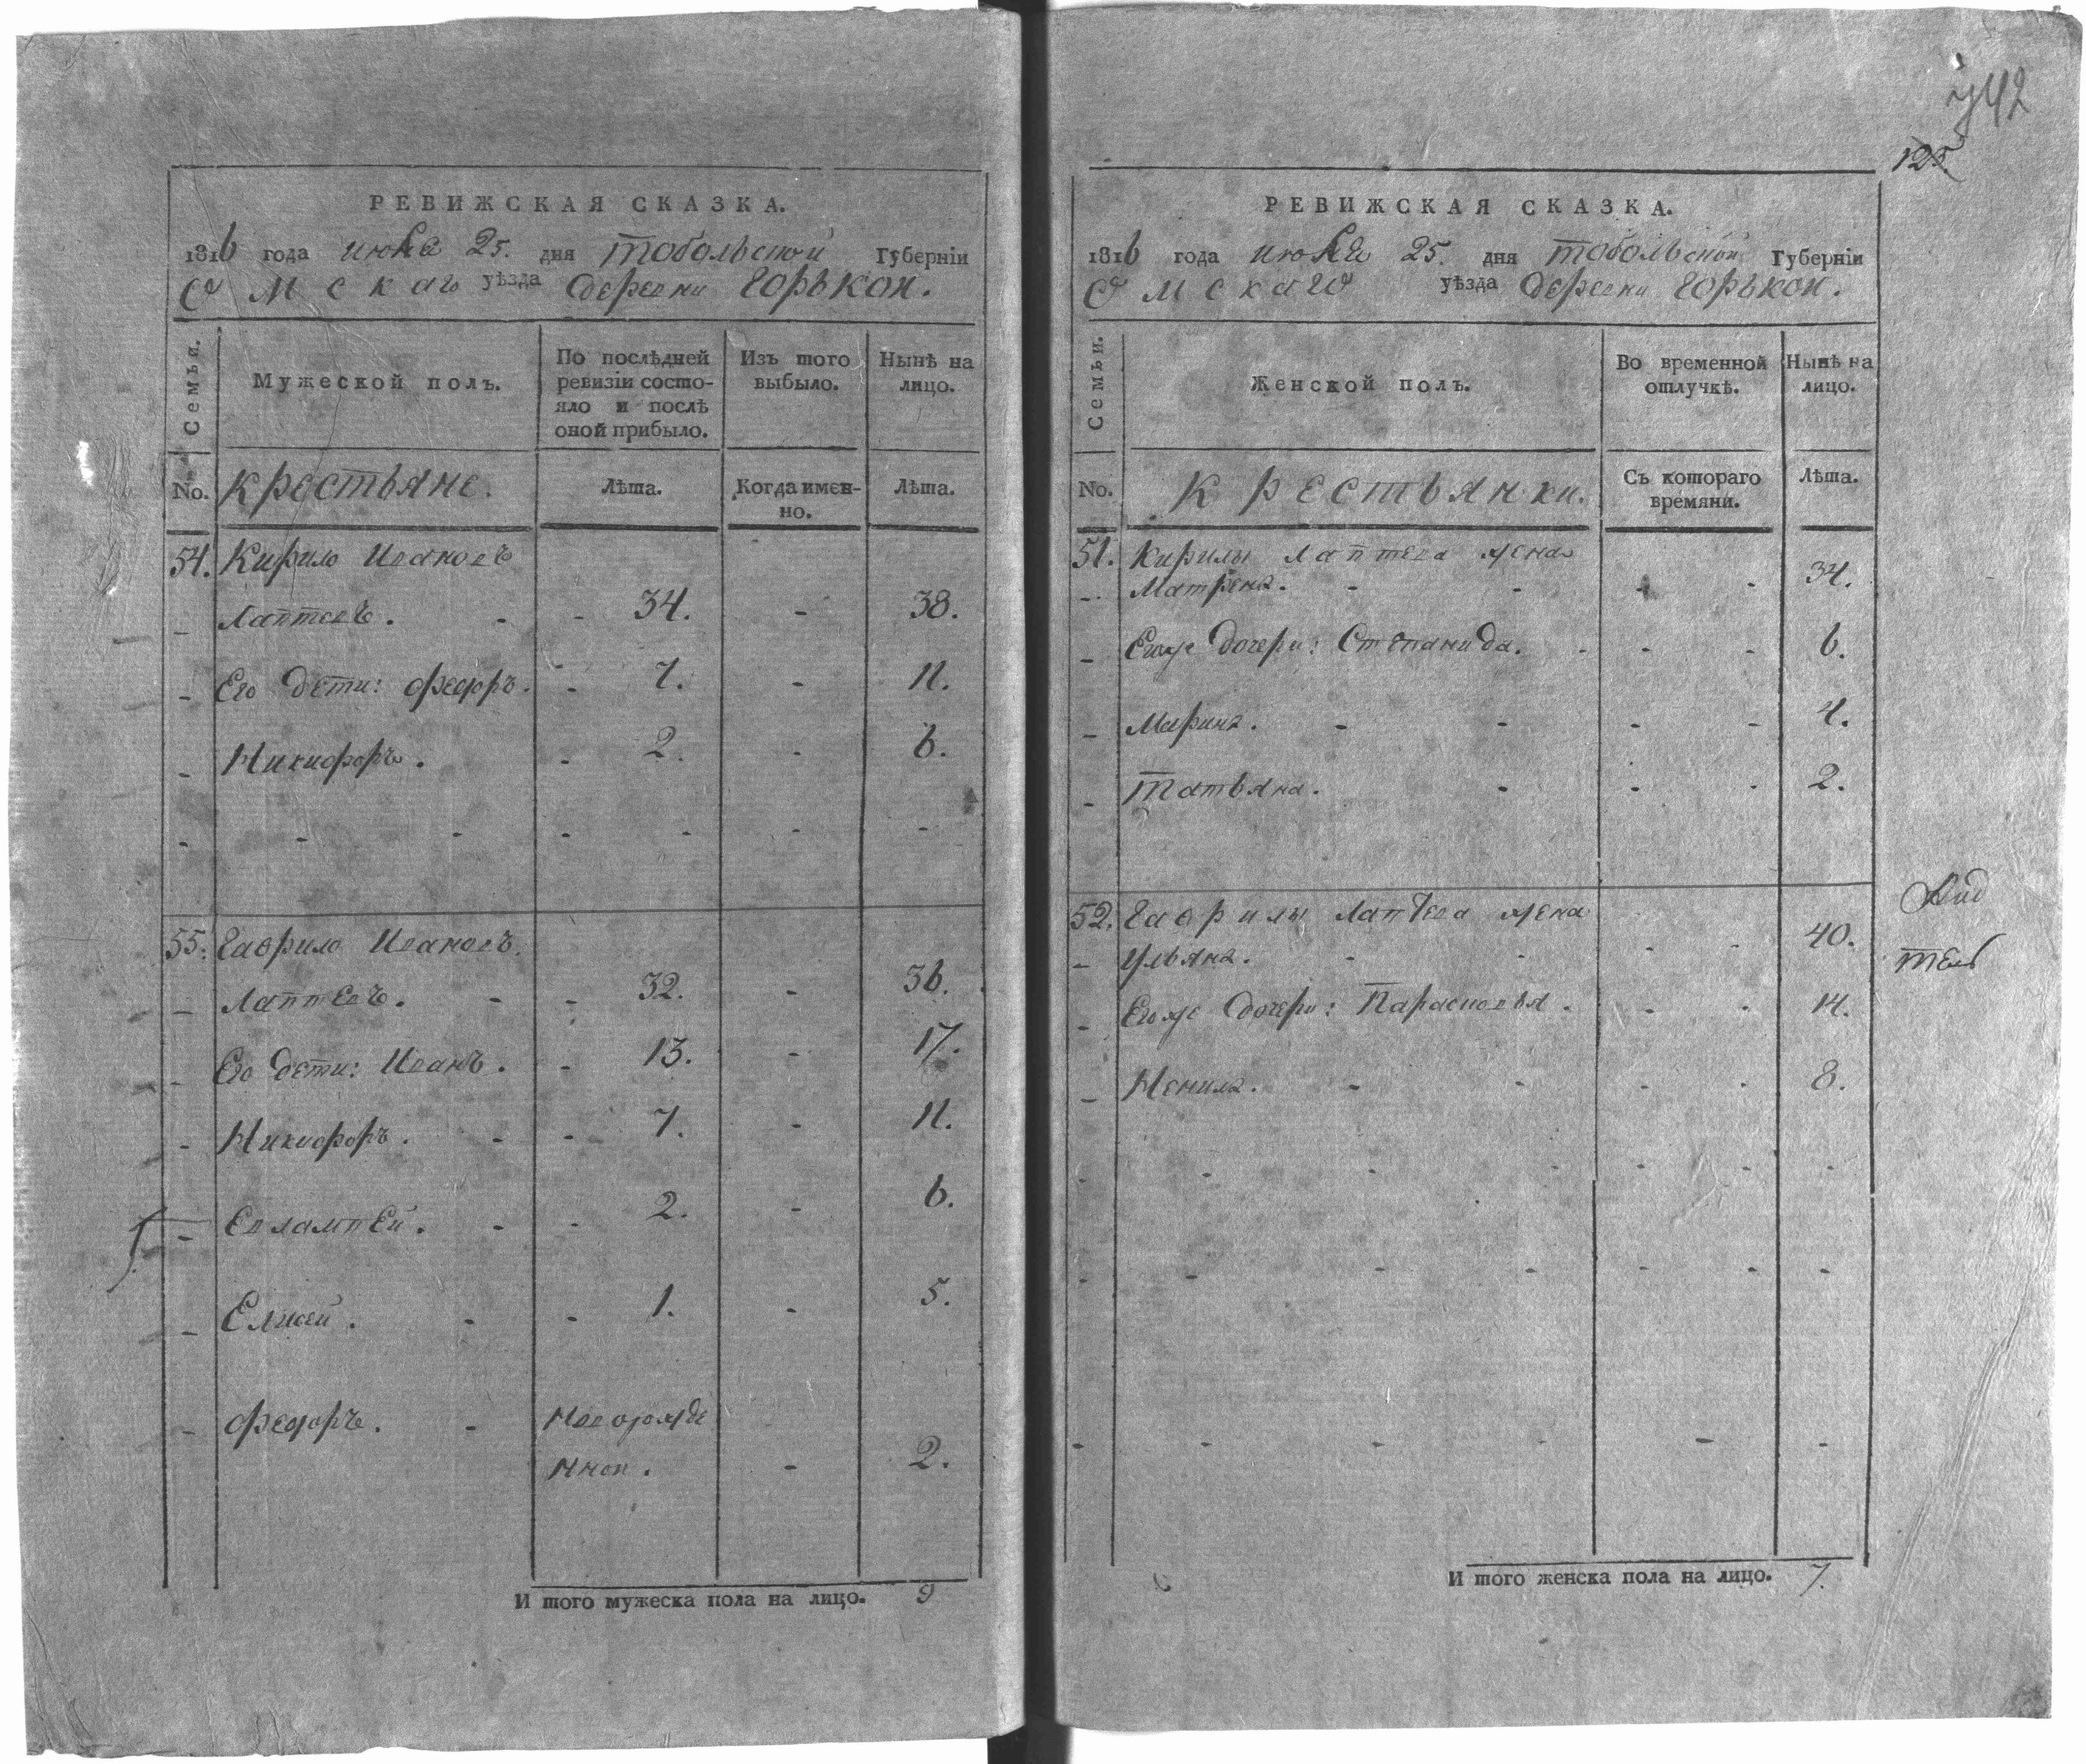 РЕВИЖСКАЯ СКАЗКА.
1816 года июня 25. дня тобольской Губерніи
Омскаго уѣзда деревни горькои.
Семьи.
Мужеской полъ.
По послѣдней ревизіи состо-яло и послѣ оной прибыло.
Изъ того выбыло.
Нынѣ на лицо.
No. крестьяне. Лѣта. Когда имен-но. Лѣта.
54. Кирило Ивановъ
Лаптевъ. 34. 38.
Его дети: Федоръ. 7. 11.
Никифоръ. 2. 6.
55. Гаврило Ивановъ
Лаптевъ. 32. 36.
Его дети: Иванъ. 13. 17.
Никифоръ. 7. 11.
Евлампей. 2. 6.
Елисей. 1. 5.
Федоръ. Новорожде
ннои. 2.
И того мужеска пола на лицо. 9
742
125
РЕВИЖСКАЯ СКАЗКА.
1816 года июня 25. дня тобольской Губерніи
Омскаго уѣзда деревни горькои.
Семьи.
Женской полъ.
Во временной отлучкѣ.
Нынѣ на лицо.
No. крестьянки. Съ котораго времяни. Лѣта.
51. Кирилы Лаптева жена
Матрена. 34.
Егоже дочери: Степанида. 6.
Марина. 4.
Татьяна. 2.
52. Гаврилы Лаптева жена
Ульяна. 40.
Егоже дочери: Парасковья. 14.
Ненила. 8.
тель
И того женска пола на лицо. 7.